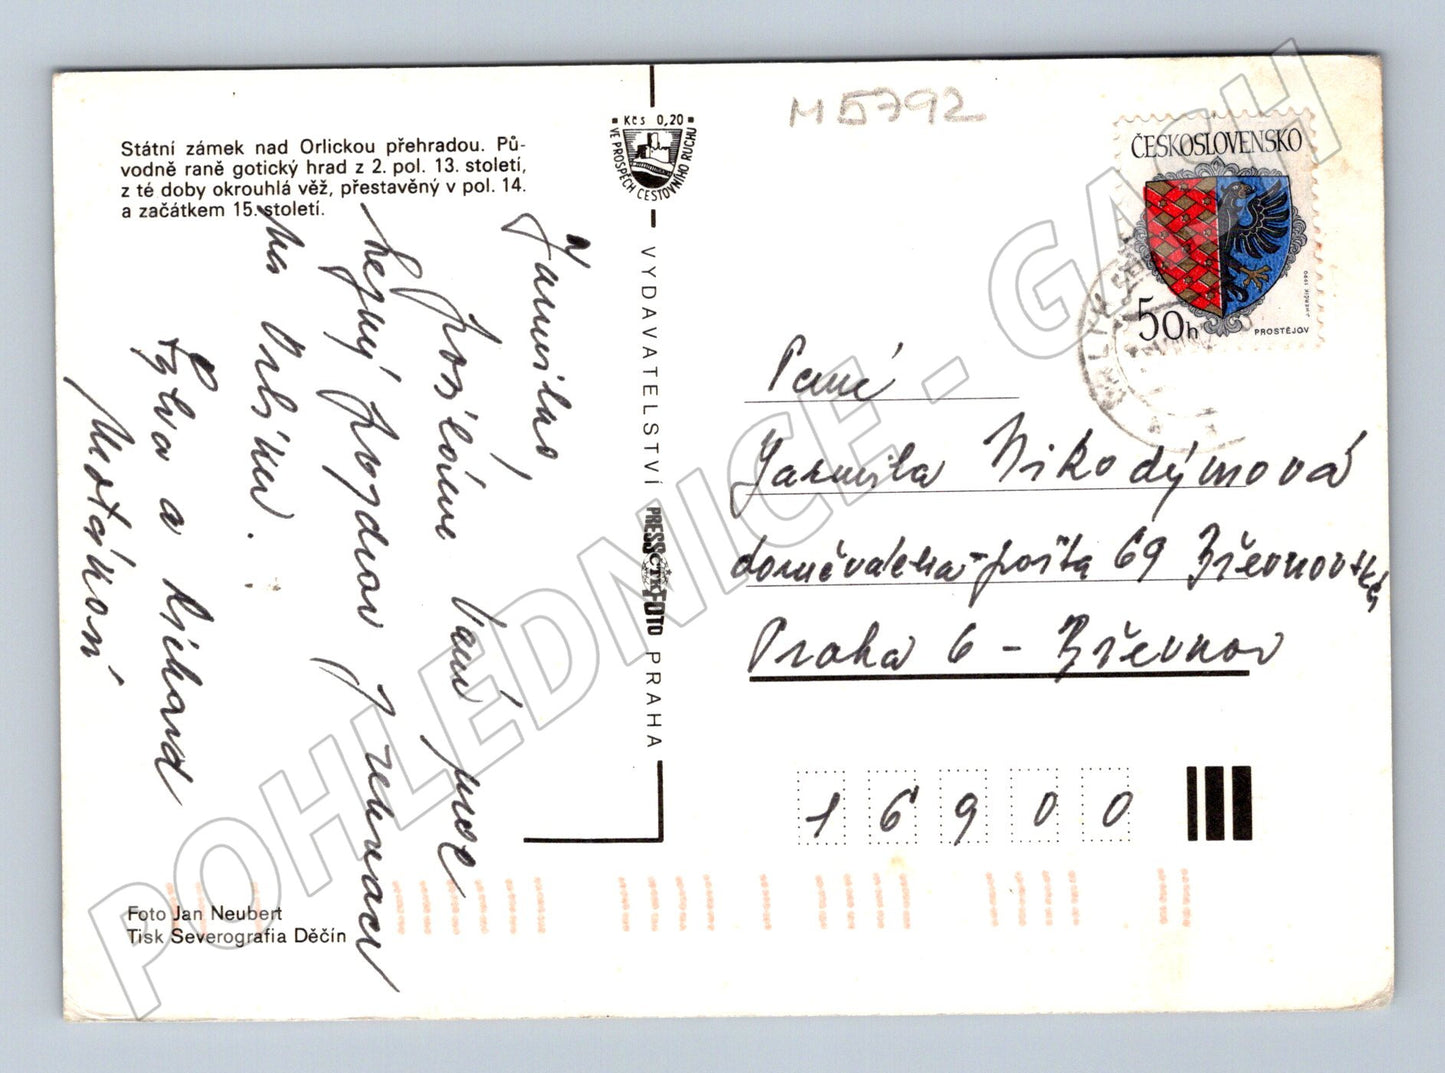 Státní zámek nad Orlickou přehradou. Pů-
vodně raně gotický hrad z 2. pol. 13. století,
z té doby okrouhlá věž, přestavěný v pol. 14.
a začátkem 15. století.
Kčs 0,20
VE PROSPĚCH CESTOVNÍHO RUCHU
M 5792
ČESKOSLOVENSKO
50h
PROSTĚJOV
Jarmilko,
posíláme Vám moc
pěkný pozdrav z rekreace
na Orlíku.
Sylva a Richard
VYDAVATELSTVÍ PRESSFOTO PRAHA
ČTK
Paní
Jarmila Nikodýmová
doručovatelka - pošta 69 Břevnovská
Praha 6 - Břevnov
16900
Foto Jan Neubert
Tisk Severografia Děčín
POHLEDNICE - GASH